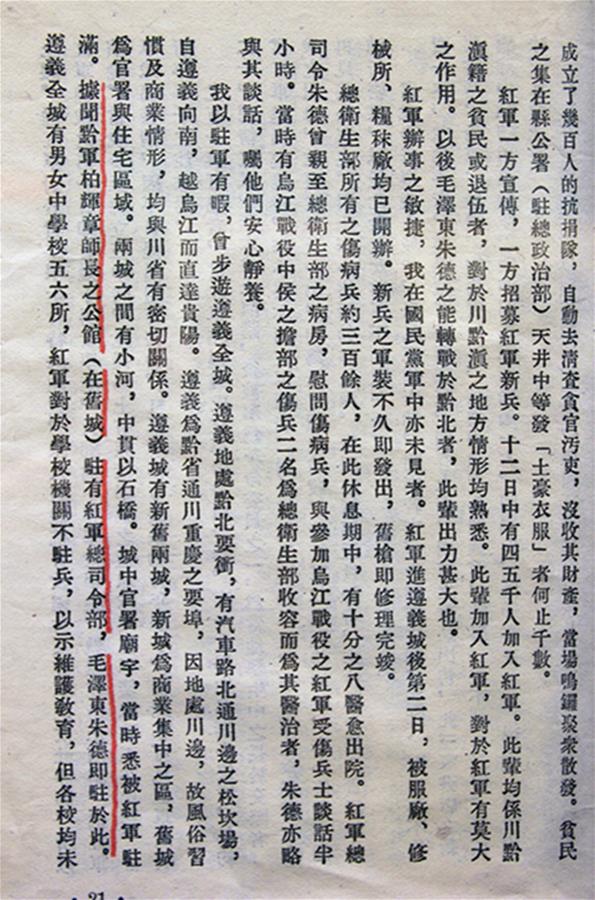 成立了幾百人的抗捐隊，自動去清查貪官汚吏，沒收其財產，當場鳴鑼聚衆散發。貧民
之集在縣公署（駐總政治部）天井中等發「土豪衣服」者何止千數。
紅軍一方宣傳，一方招募紅軍新兵。十二日中有四五千人加入紅軍。此輩均係川黔
滇籍之貧民或退伍者，對於川黔滇之地方情形均熟悉。此輩加入紅軍，對於紅軍有莫大
之作用。以後毛澤東朱德之能轉戰於黔北者，此輩出力甚大也。
紅軍辦事之敏捷，我在國民黨軍中亦未見者。紅軍進遵義城後第二日，被服廠、修
械所、糧秣廠均已開辦。新兵之軍裝不久即發出，舊槍即修理完竣。
總衛生部所有之傷病兵約三百餘人，在此休息期中，有十分之八醫愈出院。紅軍總
司令朱德曾親至總衛生部之病房，慰問傷病兵，與參加烏江戰役之紅軍受傷兵士談話半
小時。當時有烏江戰役中侯之擔部之傷兵二名爲總衛生部收容而爲其醫治者，朱德亦略
與其談話，囑他們安心靜養。
我以駐軍有暇，曾步遊遵義全城。遵義地處黔北要衝，有汽車路北通川邊之松坎場，
自遵義向南，越烏江而直達貴陽。遵義爲黔省通川重慶之要埠，因地處川邊，故風俗習
慣及商業情形，均與川省有密切關係。遵義城有新舊兩城，新城爲商業集中之區，舊城
爲官署與住宅區域。兩城之間有小河，中貫以石橋。城中官署廟宇，當時悉被紅軍駐
滿。據聞黔軍柏輝章師長之公館（在舊城）駐有紅軍總司令部，毛澤東朱德即駐於此。
遵義全城有男女中學校五六所，紅軍對於學校機關不駐兵，以示維護敎育，但各校均未
· 21 ·